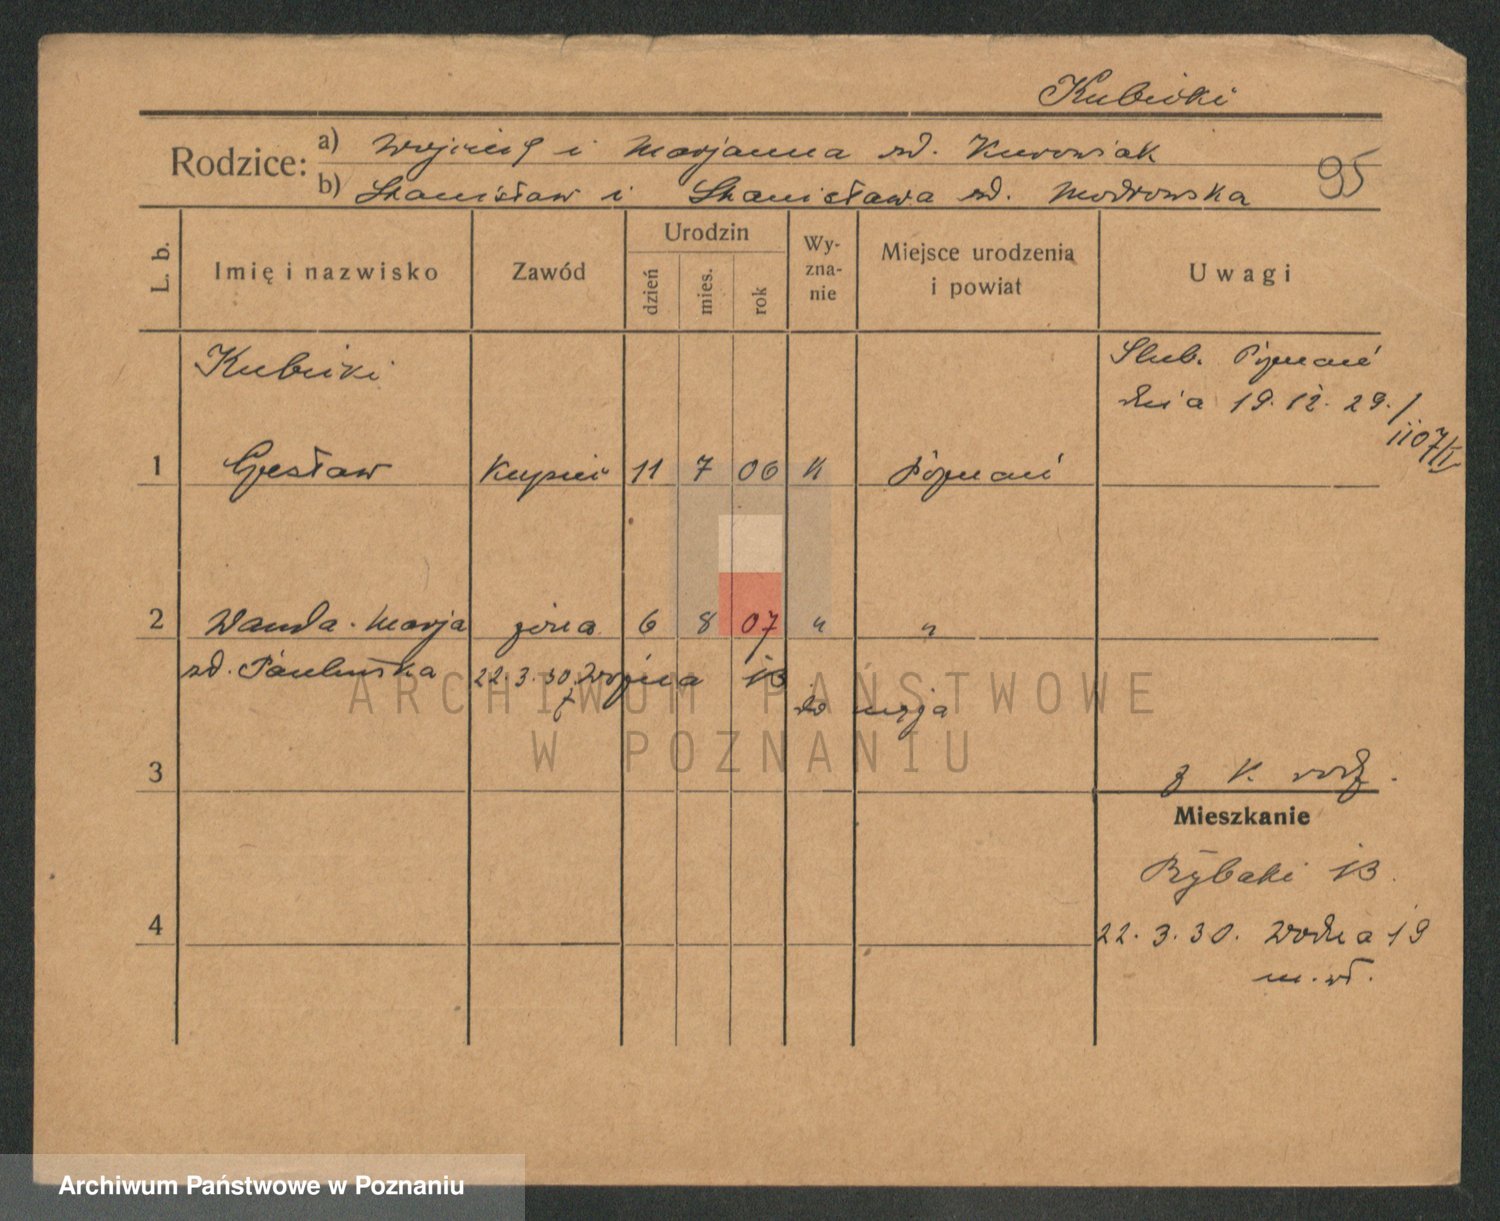 Kubicki
Rodzice: a) Wojciech i Marjanna zd. Kurowiak
b) Stanisław i Stanisława zd. Modrowska
95
L. b. Imię i nazwisko Zawód Urodzin dzień mies. rok Wy-zna-nie Miejsce urodzenia i powiat Uwagi
Kubicki
Ślub. Poznań
dnia 19. 12. 29.
1107/II
1 Czesław Kupiec 11 7 06 K Poznań
2 Wanda-Marja żona 6 8 07 " "
zd. Paulińska 22.3.30. 13
do męża
3
z K. rodz.
Mieszkanie
Rybaki 13.
4
22.3.30. Wodna 19
ARCHIWUM PAŃSTWOWE
W POZNANIU
Archiwum Państwowe w Poznaniu